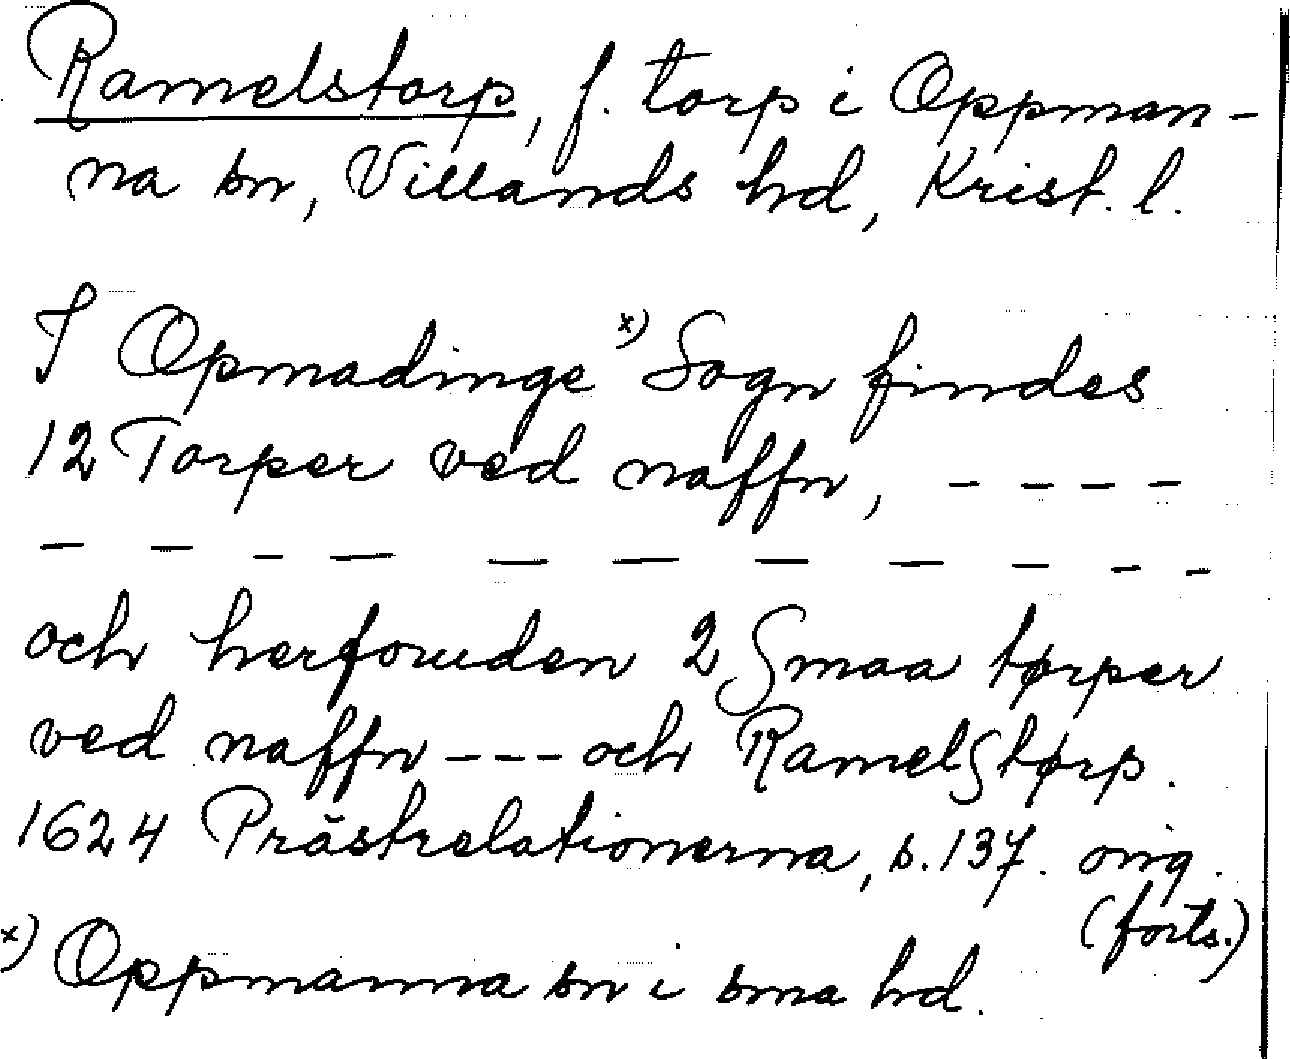 Ramelstorp, f. torp i Oppman-
na sn, Villands hd, Krist. l.
I Opmadinge x) Sogn findes
12 Torper ved naffn, - - - -
- - - - - - - - - - -
och herforuden 2 Smaa tørper
ved naffn --- och Ramelstørp.
1624 Prästrelationerna, s. 137. orig.
(forts.)
x) Oppmanna sn i sma hd.